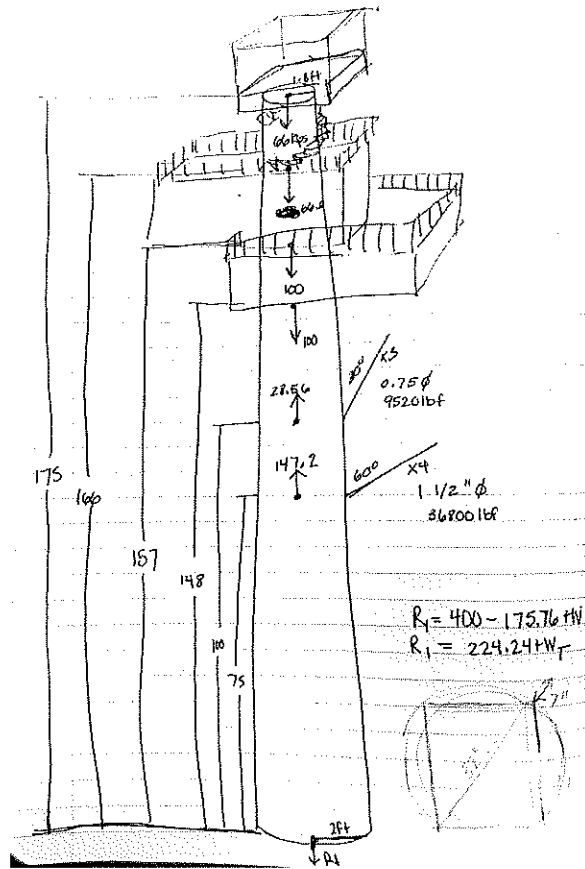 1.8ft
66kips
66.6
100
100
30°
x3
0.75 ϕ
9520 lbf
28.56
147.2
60°
x4
1 1/2" ϕ
36800 lbf
175
166
157
148
100
75
R₁ = 400 - 175.76 + W
R₁ = 224.24 + W_T
7"
2ft
R₁